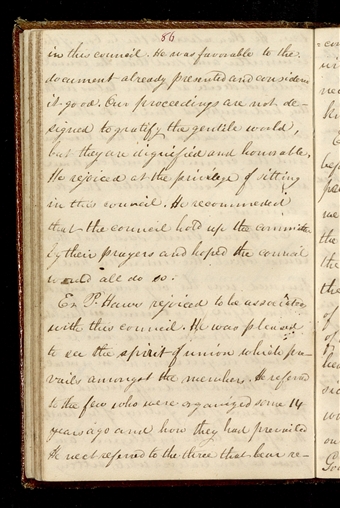 86
in this council. He was favorable to the
document already presented and considers
it good. Our proceedings are not de-
signed to gratify the gentile world,
but they are dignified and honorable,
He rejoiced at the privilege of sitting
in this council. He recommended
that the council hold up the committee
by their prayers and hoped the council
would all do so.
Er P. Haws rejoiced to be associated
with this council. He was pleased
to see the spirit of union which pre-
vails amongst the members. He refered
to the few who were organized some 14
years ago and how they had prevailed
He next refered to the three that bear re-